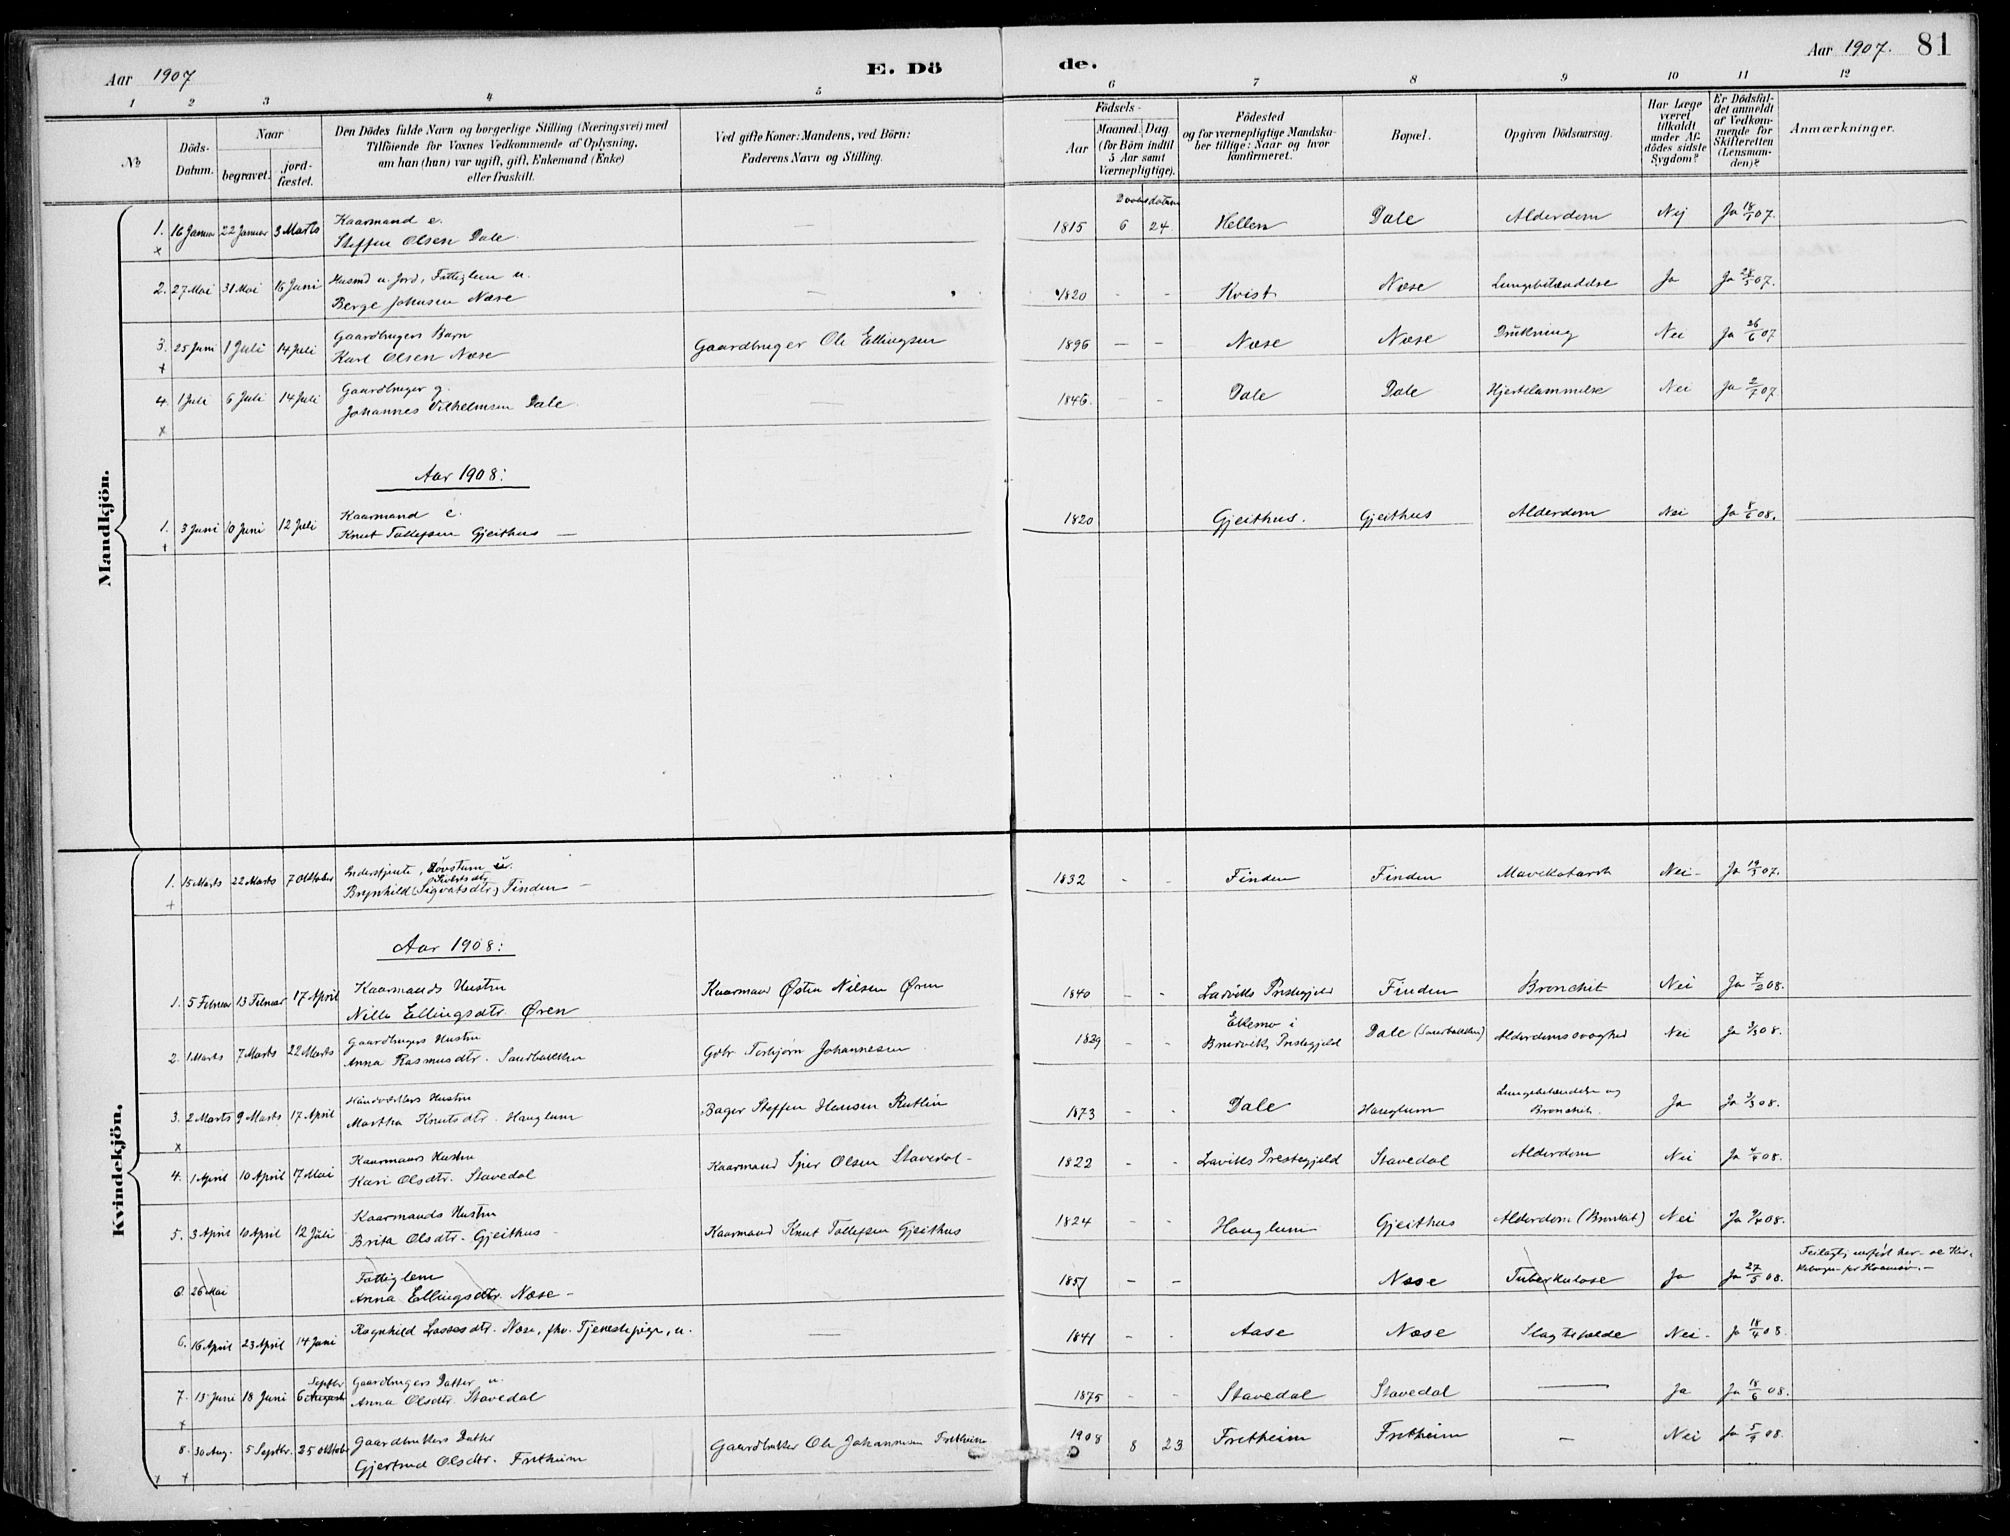 Aar 1907
E. Dö
de.
Aar 1907.
81
1 2 3 4 5 6 7 8 9 10 11 12
№
Döds-Datum.
Naar
begravet.
jord-fæstet.
Den Dödes fulde Navn og borgerlige Stilling (Næringsvei) med
Tilföiende for Voxnes Vedkommende af Oplysning,
om han (hun) var ugift, gift, Enkemand (Enke)
eller fraskilt.
Ved gifte Koner: Mandens, ved Börn:
Faderens Navn og Stilling.
Födsels-
Aar
Maaned. Dag
(for Börn indtil
5 Aar samt
Værnepligtige).
Födested
og for værnepligtige Mandska-
ber tillige: Naar og hvor
konfirmeret.
Bopæl.
Opgiven Dödsaarsag.
Har Læge
været
tilkaldt
under Af-
dödes sidste
Sygdom?
Er Dödsfal-
det anmeldt
af Vedkom-
mende for
Skifteretten
(Lensman-
den)?
Anmærkninger.
Mandkjön.
1. 16 Januar 22 Januar 3 Marts Kaarmand e. Steffen Olsen Dale. — 1815 6 24 Hellen Dale Alderdom Nej Ja 18/1 07.
2. 27 Mai 31 Mai 16 Juni Husmd u. Jord, Fattiglem u. Berge Johnsen Næse — 1820 - - Kvist Næse Lungebetændelse Ja Ja 28/5 07.
3. 25 Juni 1 Juli 14 Juli Gaardbrugers Barn Karl Olsen Næse Gaardbruger Ole Ellingsen 1896 — — Næse Næse Drukning Nei Ja 26/6 07
4. 1 Juli 6 Juli 14 Juli Gaardbruger g. Johannes Vilhelmsen Dale. 1846. - - Dale Dale Hjertelammelse Nei Ja 2/7 07
Aar 1908:
1. 3 Juni 10 Juni 12 Juli Kaarmand e. Knut Tollefsen Gjeithus — 1820 Gjeithus. Gjeithus Alderdom Nei Ja 8/6 08.
Kvindekjön.
1. 15 Marts 22 Marts 7 Oktober Døvstum u. Brynhild (Sigvatsdtr.) Finden — 1832 - - Finden Finden Mavekatarrh Nei - Ja 19/3 07.
Aar 1908:
1. 5 Februar 13 Februar 17 April Kaarmands Hustru Nille Ellingsdtr. Øren Kaarmand Østen Nilsen Øren 1840 - - Laviks Prestegjeld Finden Bronchit Nei Ja 7/2 08.
2. 1 Marts 7 Marts 22 Marts Gaardbrugers Hustru Anna Rasmusdtr. Sandbakken Gdbr Torbjørn Johannesen 1829 - - i Prestegjeld Dale (Sandbakken) Alderdomssvaghed Nei Ja 08.
3. 2 Marts 9 Marts 17 April Haandværkers Hustru Martha Knutsdtr. Hauglum Bager Steffen Hansen Rutlin 1873 - - Dale Hauglum Lungebetændelse og Bronchit. Ja Ja 08.
4. 1 April 10 April 17 Mai Kaarmans Hustru Kari Olsdtr. Stavedal Kaarmand Sjur Olsen Stavedal - 1822 - - Laviks Prestegjeld Stavedal Alderdom Nei Ja 08.
5. 3 April 10 April 12 Juli Kaarmands Hustru Brita Olsdtr. Gjeithus Kaarmand Knut Tollefsen Gjeithus 1824 - - Hauglum Gjeithus Alderdom (Bronkit) Nei Ja 08.
6. 26 Mai Fattiglem Anna Ellingsdtr. Næse - 1851 — — Næse Tuberkulose Ja Ja 27/5 08. Feilagtig indført her -
6. 16 April 23 April 14 Juni Ragnhild Lassesdtr. Næse, fhv. Tjenestepige, u. — 1841 - - Aase Næse Slagtilfælde Nei - Ja 18/4 08.
7. 13 Juni 18 Juni 6 August Septbr Gaardbrugers Datter u. Anna Olsdtr. Stavedal 1875 - - Stavedal Stavedal — Ja Ja 18/6 08.
8. 30 Aug. 5 Septbr. 25 Oktober Gaardbrukers Datter Gjertrud Olsdtr. Fretheim Gaardbruker Ole Johannesen Fretheim 1908 8 23 Fretheim Fretheim — Nei Ja 5/9 08.